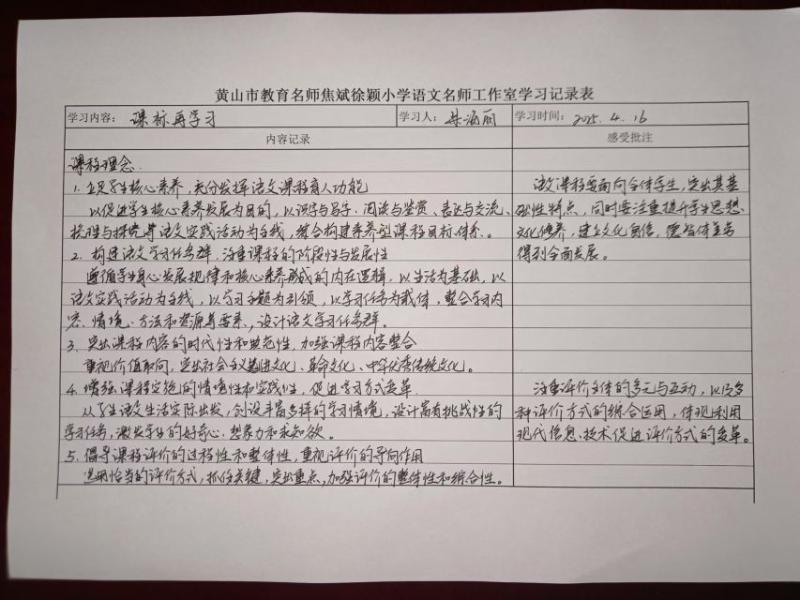 黄山市教育名师焦斌徐颖小学语文名师工作室学习记录表
学习内容: 课标再学习
学习人:
学习时间: 2025.4.16
内容记录
感受批注
课程理念
1. 立足学生核心素养,充分发挥语文课程育人功能
以促进学生核心素养发展为目的,以识字与写字、阅读与鉴赏、表达与交流、
梳理与探究等语文实践活动为主线,综合构建素养型课程目标体系。
2. 构建语文学习任务群,注重课程的阶段性与发展性
遵循学生身心发展规律和核心素养形成的内在逻辑,以生活为基础,以
语文实践活动为主线,以学习主题为引领,以学习任务为载体,整合学习内
容、情境、方法和资源等要素,设计语文学习任务群。
3. 突出课程内容的时代性和典范性,加强课程内容整合
重视价值取向,突出社会主义先进文化、革命文化、中华优秀传统文化。
4. 增强课程实施的情境性和实践性,促进学习方式变革
从学生语文生活实际出发,创设丰富多样的学习情境,设计富有挑战性的
学习任务,激发学生的好奇心、想象力和求知欲。
5. 倡导课程评价的过程性和整体性,重视评价的导向作用
选用恰当的评价方式,抓住关键,突出重点,加强评价的整体性和综合性。
语文课程要面向全体学生,突出其基
础性特点,同时要注重提升学生思想
文化修养,建立文化自信,德智体美劳
得到全面发展。
注重评价主体的多元与互动,以及多
种评价方式的综合运用,体现利用
现代信息技术促进评价方式的变革。